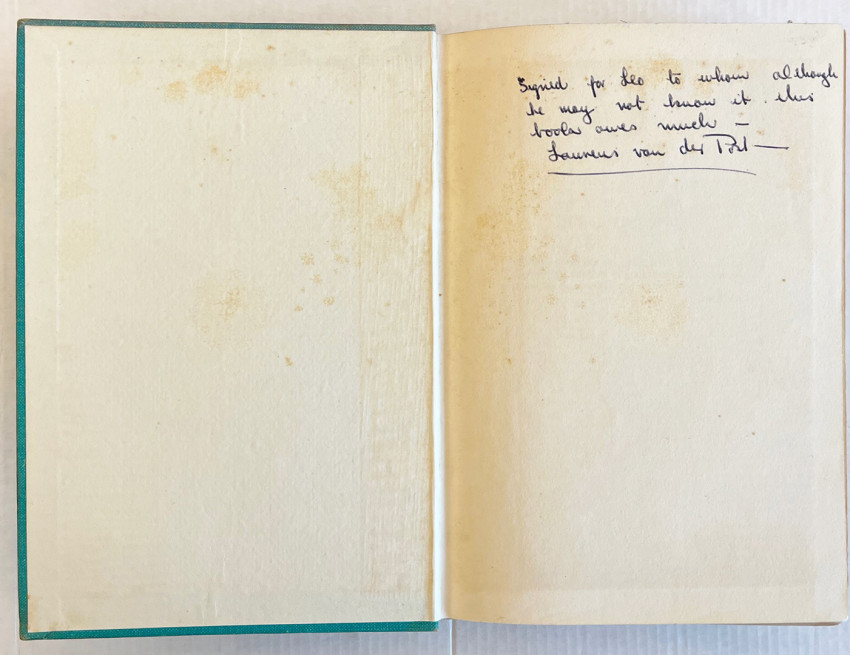 Signed for Leo to whom although
he may not know it this
book owes much —
Laurens van der Post —